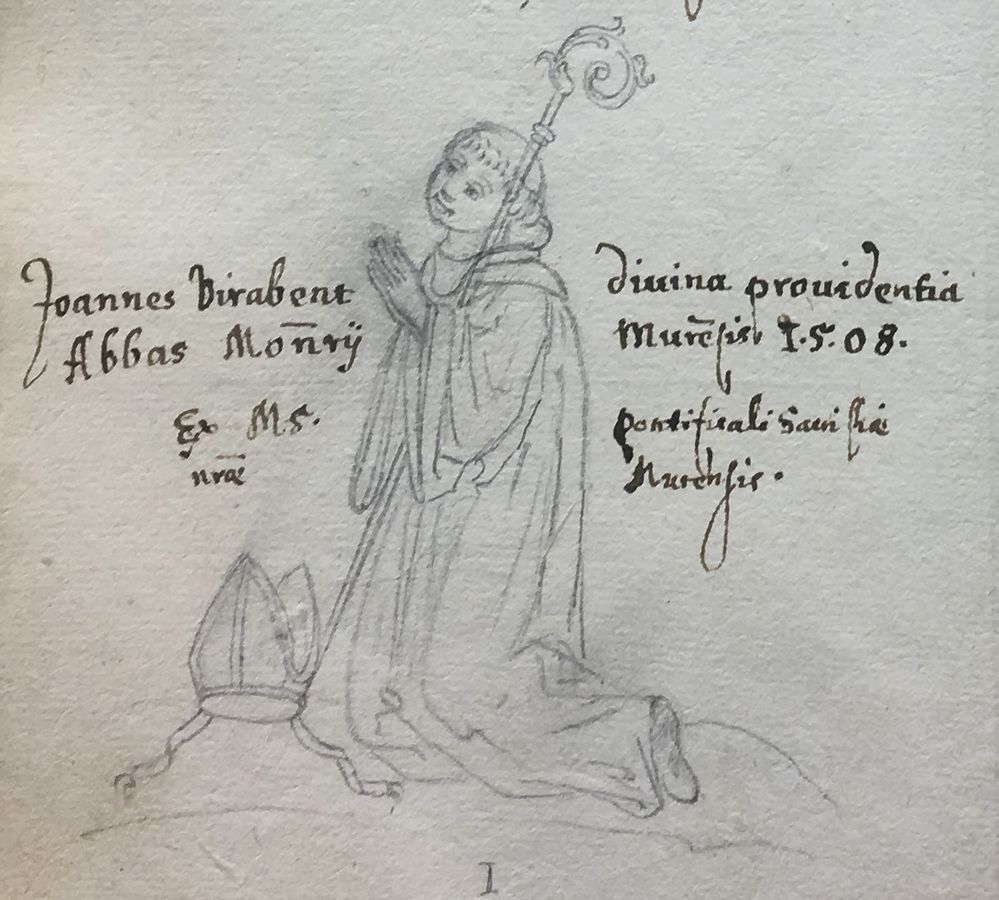 Joannes Birabent divina providentia
Abbas Mon̄rij Murēsis 1.5.08.
Ex M.S. pontificali
nræ Murensis.
I